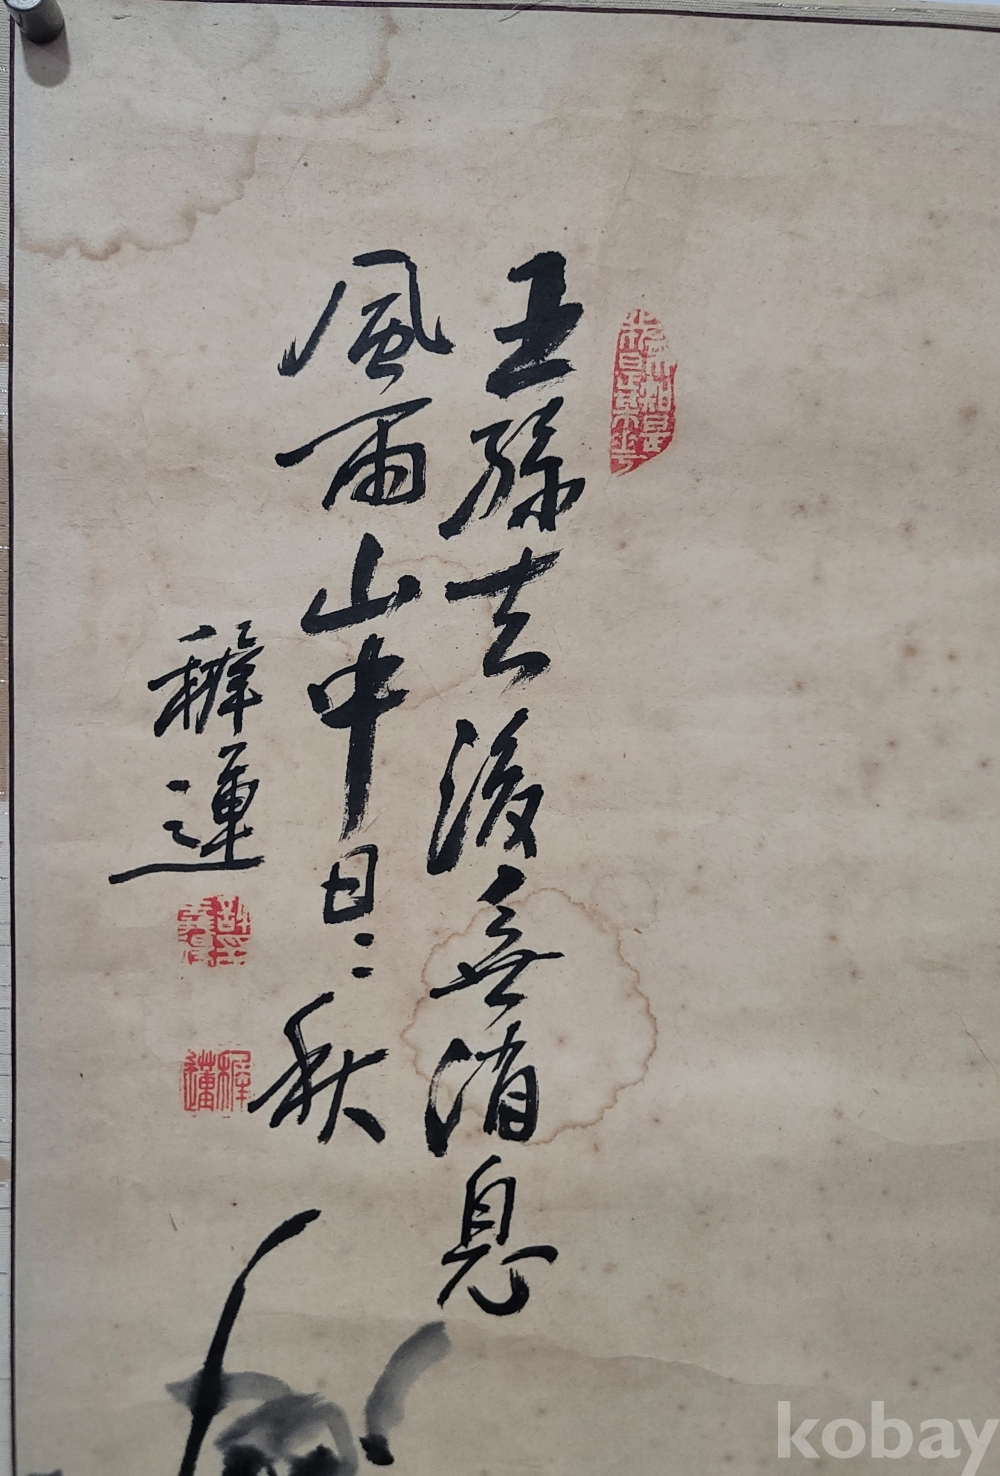 王孫去後無消息
風雨山中日〻秋
穉蓮
kobay